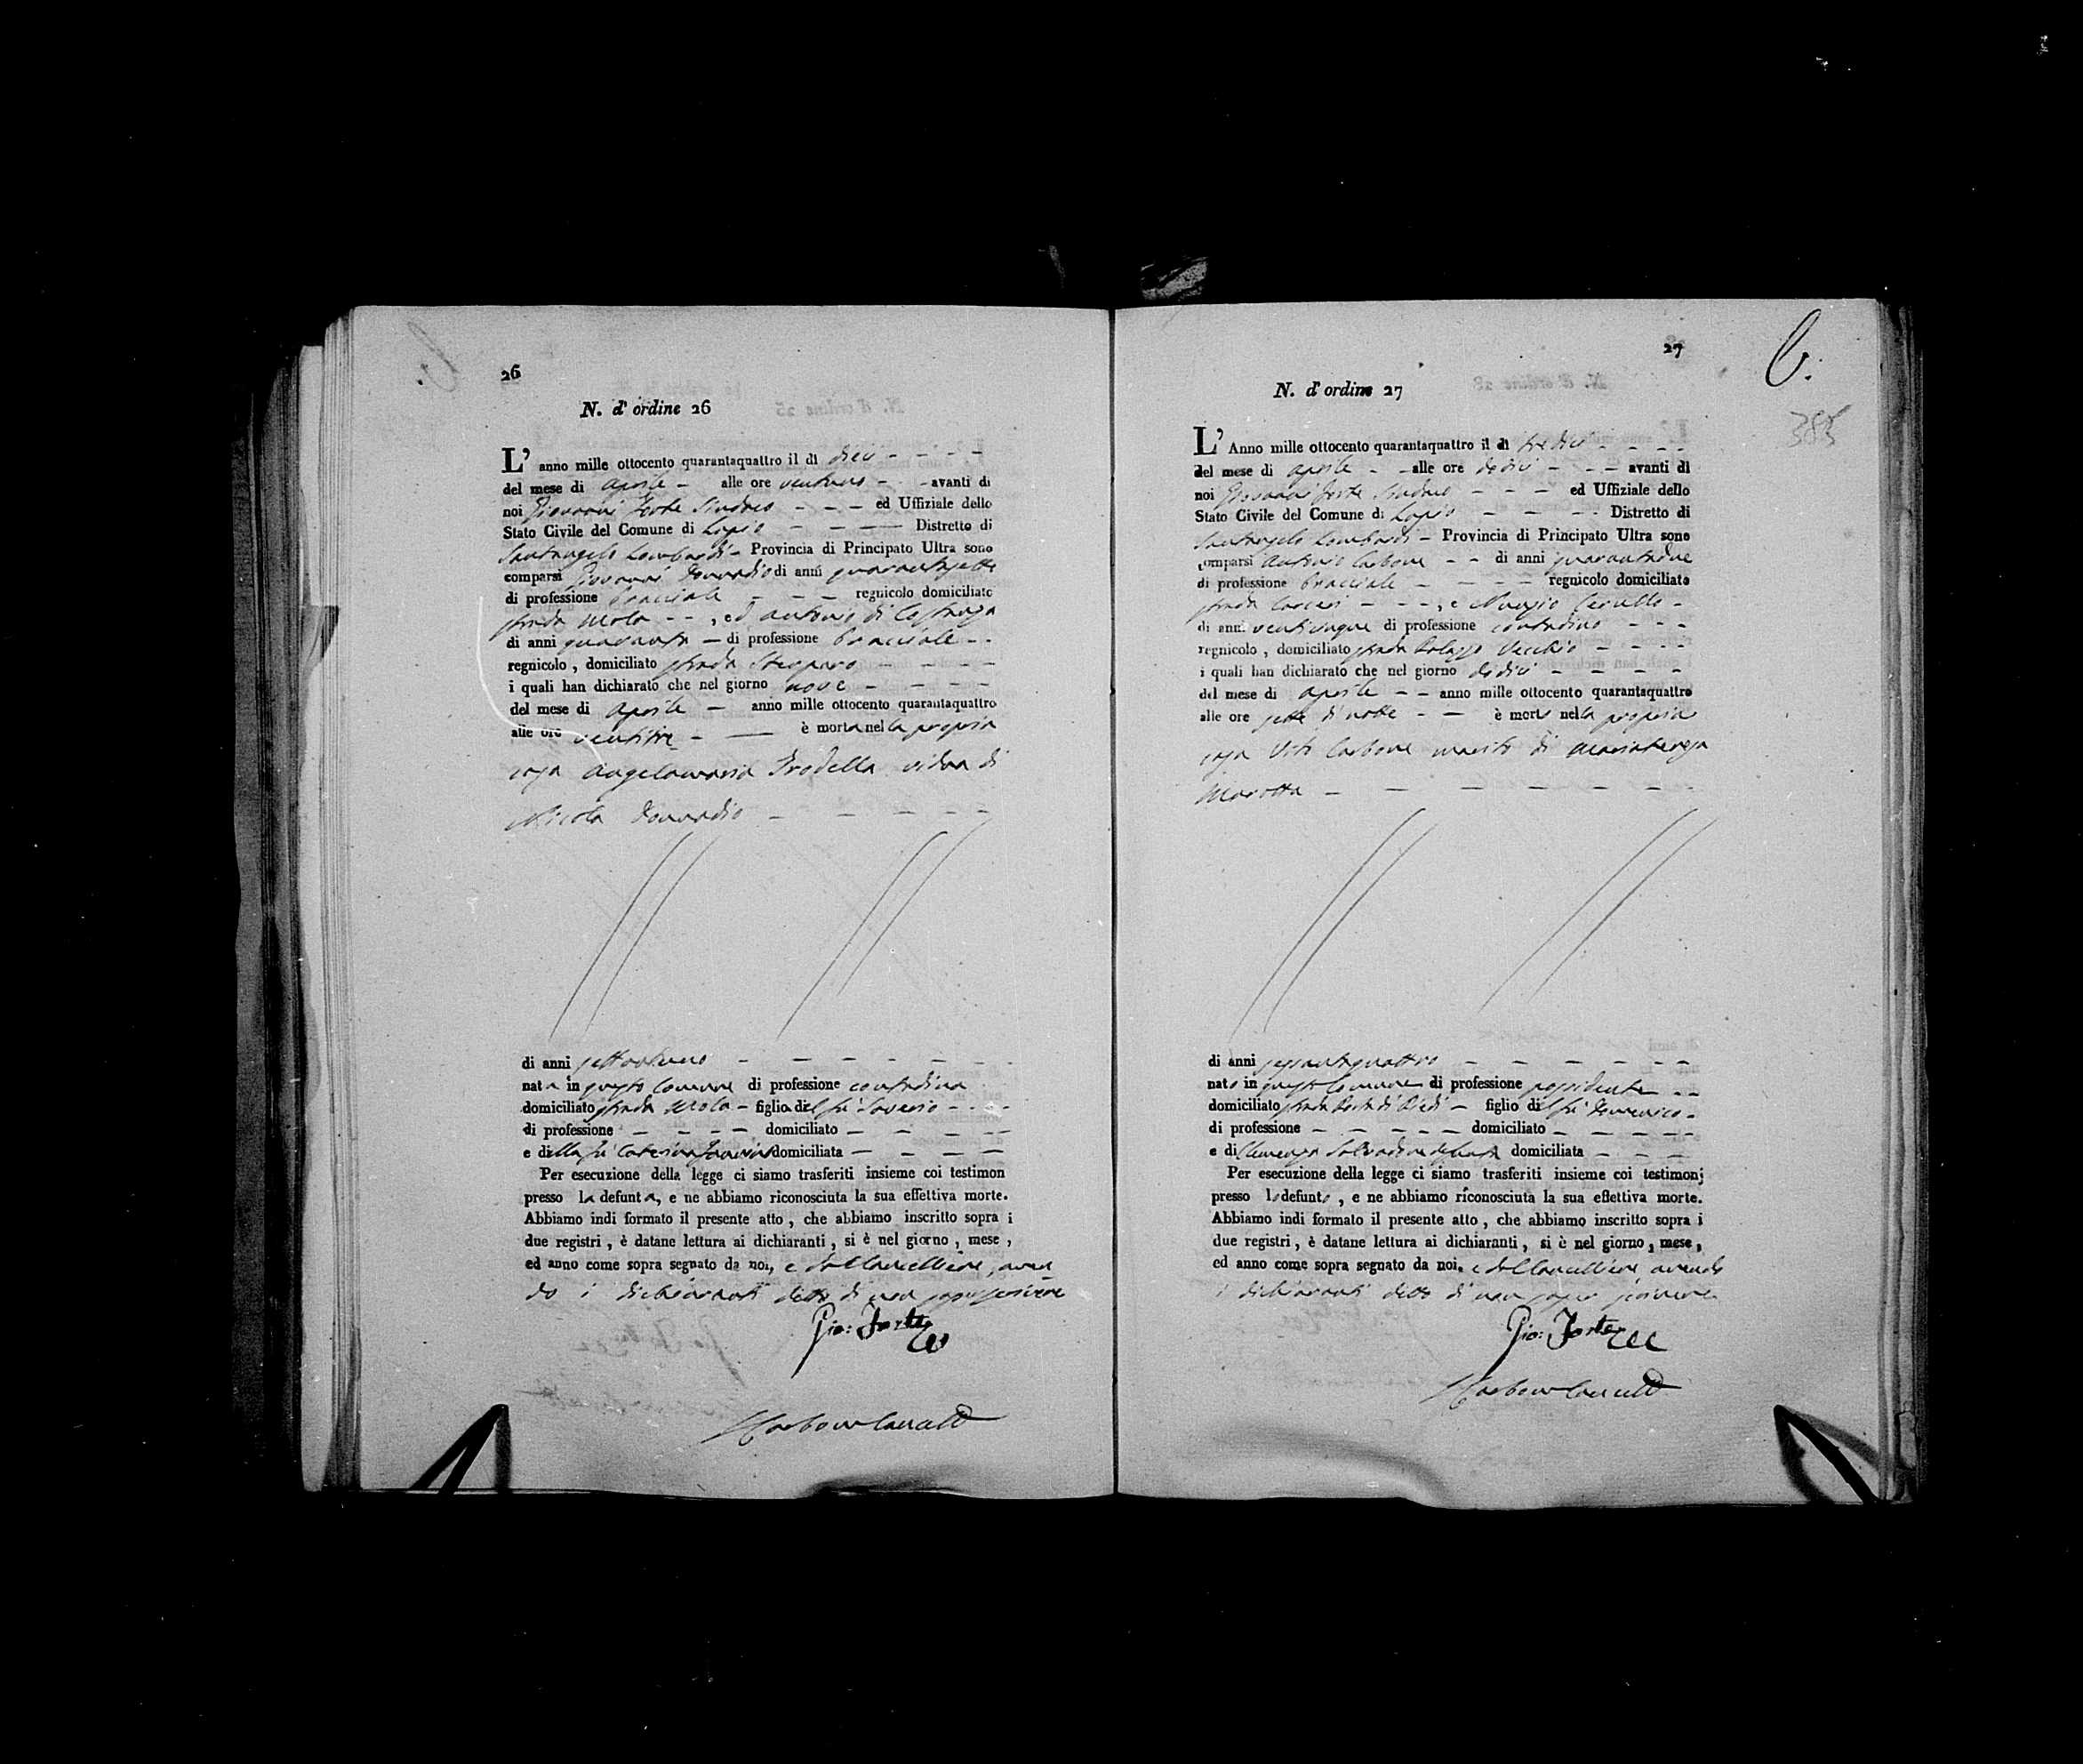 26
N. d' ordine 26
L' anno mille ottocento quarantaquattro il di dieci
del mese di aprile alle ore ventuno avanti di
noi Giovanni Forte Sindaco ed Uffiziale dello
Stato Civile del Comune di Lapio Distretto di
Santangelo Lombardi Provincia di Principato Ultra sono
comparsi Giovanni Donnadio di anni quarantasette
di professione bracciale regnicolo domiciliato
strada Mola , ed Antonio di
di anni quaranta di professione bracciale
regnicolo , domiciliato strada
i quali han dichiarato che nel giorno nove
del mese di aprile anno mille ottocento quarantaquattro
alle ore ventitre è morta nella propria
casa Angelamaria vidua di
Nicola Donnadio
di anni settantuno
nata in questo Comune di professione contadina
domiciliato strada Mola figlia del fu Saverio
di professione domiciliato
e della fu Caterina domiciliata
Per esecuzione della legge ci siamo trasferiti insieme coi testimon
presso la defunta, e ne abbiamo riconosciuta la sua effettiva morte.
Abbiamo indi formato il presente atto , che abbiamo inscritto sopra i
due registri , è datane lettura ai dichiaranti , si è nel giorno , mese ,
ed anno come sopra segnato da noi, e dal Cancelliere, aven
do i dichiaranti detto di non saper scrivere
Gio: Forte
Carbone Cancell
27
N. d' ordine 27
385
L' Anno mille ottocento quarantaquattro il di tredici
del mese di aprile alle ore dodici avanti di
noi Giovanni Forte Sindaco ed Uffiziale dello
Stato Civile del Comune di Lapio Distretto di
Santangelo Lombardi Provincia di Principato Ultra sono
comparsi Antonio Carbone di anni quarantadue
di professione bracciale regnicolo domiciliato
strada , e Nunzio
di anni venticinque di professione contadino
regnicolo , domiciliato strada Palazzo Vecchio
i quali han dichiarato che nel giorno dodici
del mese di aprile anno mille ottocento quarantaquattro
alle ore sette di notte è morto nella propria
casa Vito Carbone marito di Mariateresa
Marotta
di anni sessantaquattro
nato in questo Comune di professione possidente
domiciliato strada figlio del fu Domenico
di professione domiciliato
e di domiciliata
Per esecuzione della legge ci siamo trasferiti insieme coi testimonj
presso lo defunto , e ne abbiamo riconosciuta la sua effettiva morte.
Abbiamo indi formato il presente atto , che abbiamo inscritto sopra i
due registri , è datane lettura ai dichiaranti , si è nel giorno , mese ,
ed anno come sopra segnato da noi. e dal Cancelliere avendo
i dichiaranti detto di non saper scrivere
Gio: Forte
Carbone Cancell